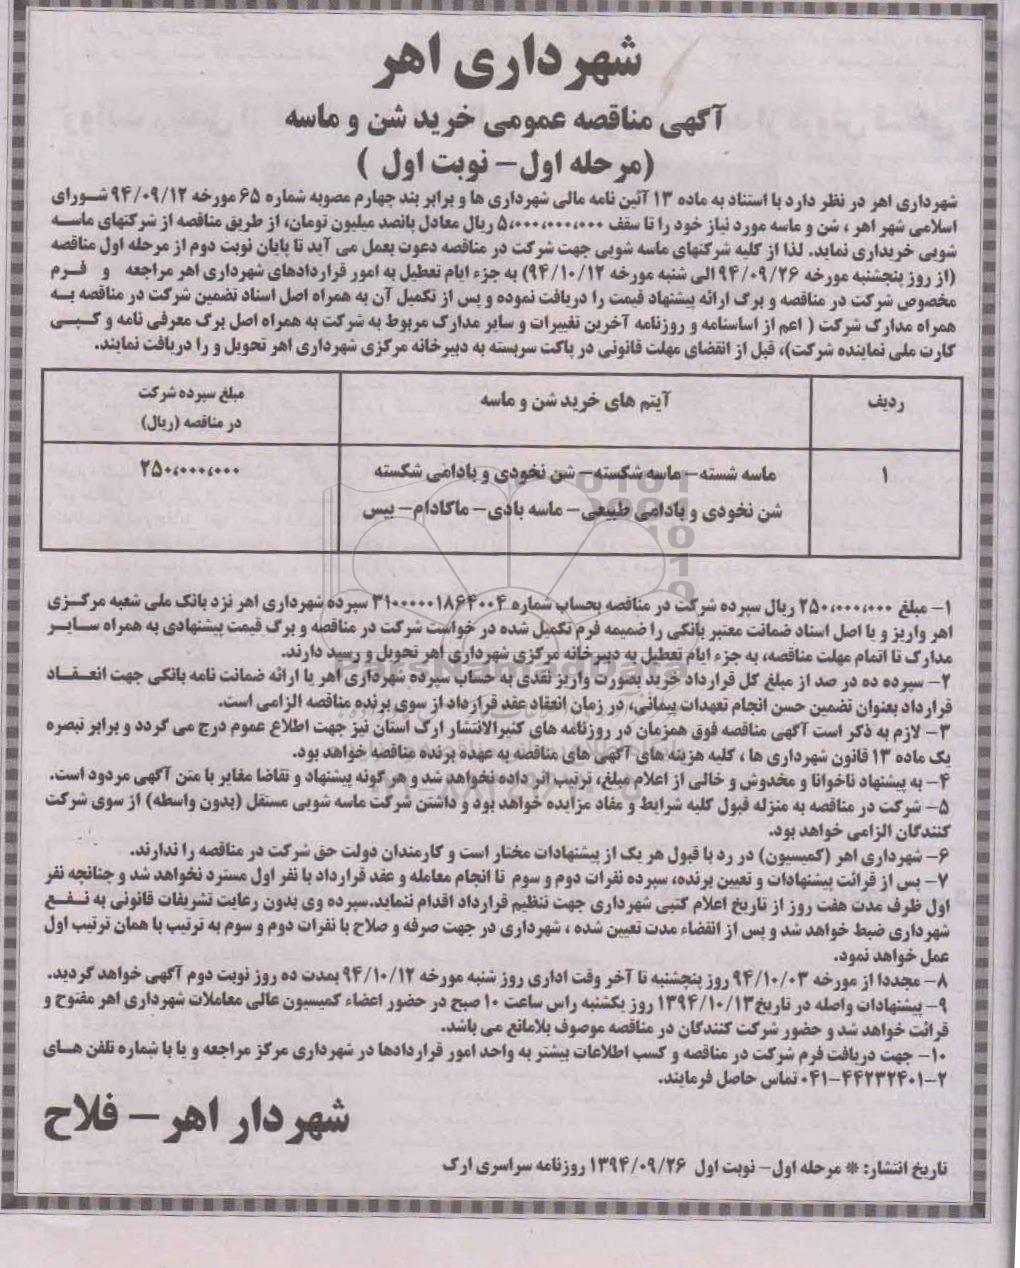 شهرداری اهر
آگهی مناقصه عمومی خرید شن و ماسه
(مرحله اول- نوبت اول )
شهرداری اهر در نظر دارد با استناد به ماده ۱۳ آئین نامه مالی شهرداری ها و برابر بند چهارم مصوبه شماره ۶۵ مورخه ۹۴/۰۹/۱۲ شـورای
اسلامی شهر اهر ، شن و ماسه مورد نیاز خود را تا سقف ۵,۰۰۰,۰۰۰,۰۰۰ ریال معادل پانصد میلیون تومان، از طریق مناقصه از شرکتهای ماسه
شویی خریداری نماید. لذا از کلیه شرکتهای ماسه شویی جهت شرکت در مناقصه دعوت بعمل می آید تا پایان نوبت دوم از مرحله اول مناقصه
(از روز پنجشنبه مورخه ۹۴/۰۹/۲۶ الی شنبه مورخه ۹۴/۱۰/۱۲) به جزء ایام تعطیل به امور قراردادهای شهرداری اهر مراجعه و فرم
مخصوص شرکت در مناقصه و برگ ارائه پیشنهاد قیمت را دریافت نموده و پس از تکمیل آن به همراه اصل اسناد تضمین شرکت در مناقصه به
همراه مدارک شرکت ( اعم از اساسنامه و روزنامه آخرین تغییرات و سایر مدارک مربوط به شرکت به همراه اصل برگ معرفی نامه و کـپـی
کارت ملی نماینده شرکت)، قبل از انقضای مهلت قانونی در پاکت سربسته به دبیرخانه مرکزی شهرداری اهر تحویل و را دریافت نمایند.
ردیف
آیتم های خرید شن و ماسه
مبلغ سپرده شرکت
در مناقصه (ریال)
۱
ماسه شسته- ماسه شکسته- شن نخودی و بادامی شکسته
۲۵۰,۰۰۰,۰۰۰
شن نخودی و بادامی طبیعی- ماسه بادی- ماکادام- بیس
۱- مبلغ ۲۵۰,۰۰۰,۰۰۰ ریال سپرده شرکت در مناقصه بحساب شماره ۳۱۰۰۰۰۰۱۸۶۴۰۰۴ سپرده شهرداری اهر نزد بانک ملی شعبه مرکـزی
اهر واریز و یا اصل اسناد ضمانت معتبر بانکی را ضمیمه فرم تکمیل شده در خواست شرکت در مناقصه و برگ قیمت پیشنهادی به همراه سـایـر
مدارک تا اتمام مهلت مناقصه، به جزء ایام تعطیل به دبیرخانه مرکزی شهرداری اهر تحویل و رسید دارند.
۲- سپرده ده در صد از مبلغ کل قرارداد خرید بصورت واریز نقدی به حساب سپرده شهرداری اهر یا ارائه ضمانت نامه بانکی جهت انعـقـاد
قرارداد بعنوان تضمین حسن انجام تعهدات پیمانی، در زمان انعقاد عقد قرارداد از سوی برنده مناقصه الزامی است.
۳- لازم به ذکر است آگهی مناقصه فوق همزمان در روزنامه های کثیرالانتشار ارک استان نیز جهت اطلاع عموم درج می گردد و برابر تبصره
یک ماده ۱۳ قانون شهرداری ها ، کلیه هزینه های آگهی های مناقصه به عهده برنده مناقصه خواهد بود.
۴- به پیشنهاد ناخوانا و مخدوش و خالی از اعلام مبلغ، ترتیب اثر داده نخواهد شد و هر گونه پیشنهاد و تقاضا مغایر با متن آگهی مردود است.
۵- شرکت در مناقصه به منزله قبول کلیه شرایط و مفاد مزایده خواهد بود و داشتن شرکت ماسه شویی مستقل (بدون واسطه) از سوی شرکت
کنندگان الزامی خواهد بود.
۶- شهرداری اهر (کمیسیون) در رد یا قبول هر یک از پیشنهادات مختار است و کارمندان دولت حق شرکت در مناقصه را ندارند.
۷- پس از قرائت پیشنهادات و تعیین برنده، سپرده نفرات دوم و سوم تا انجام معامله و عقد قرارداد با نفر اول مسترد نخواهد شد و چنانچه نفر
اول ظرف مدت هفت روز از تاریخ اعلام کتبی شهرداری جهت تنظیم قرارداد اقدام ننماید.سپرده وی بدون رعایت تشریفات قانونی به نـفـع
شهرداری ضبط خواهد شد و پس از انقضاء مدت تعیین شده ، شهرداری در جهت صرفه و صلاح با نفرات دوم و سوم به ترتیب با همان ترتیب اول
عمل خواهد نمود.
۸- مجددا از مورخه ۹۴/۱۰/۰۳ روز پنجشنبه تا آخر وقت اداری روز شنبه مورخه ۹۴/۱۰/۱۲ بمدت ده روز نوبت دوم آگهی خواهد گردید.
۹- پیشنهادات واصله در تاریخ ۱۳۹۴/۱۰/۱۳ روز یکشنبه راس ساعت ۱۰ صبح در حضور اعضاء کمیسیون عالی معاملات شهرداری اهر مفتوح و
قرائت خواهد شد و حضور شرکت کنندگان در مناقصه موصوف بلامانع می باشد.
۱۰- جهت دریافت فرم شرکت در مناقصه و کسب اطلاعات بیشتر به واحد امور قراردادها در شهرداری مرکز مراجعه و یا با شماره تلفن هـای
۲-۰۴۱-۴۴۲۳۲۴۰۱ تماس حاصل فرمایند.
شهردار اهر- فلاح
تاریخ انتشار: * مرحله اول- نوبت اول ۱۳۹۴/۰۹/۲۶ روزنامه سراسری ارک